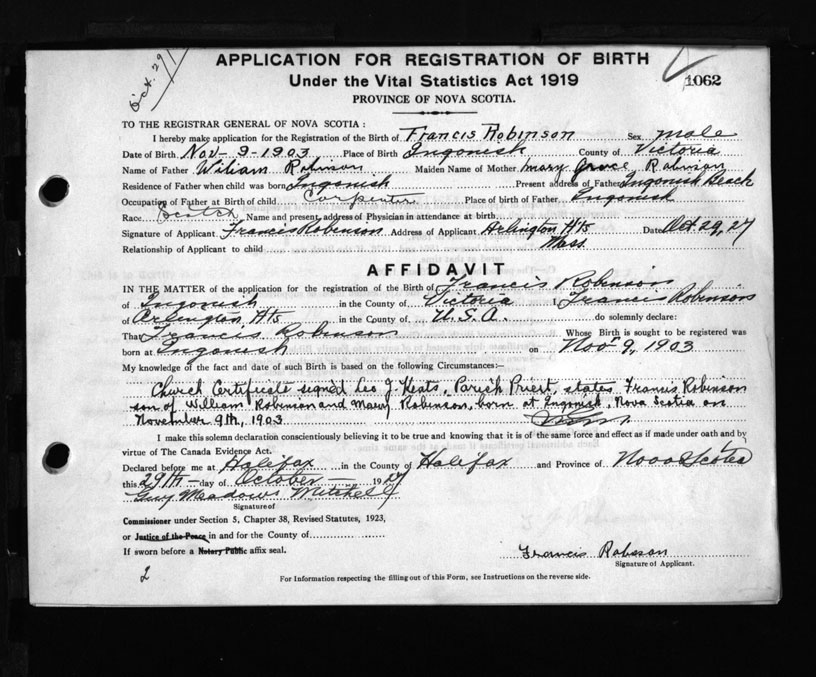 Oct. 29/
APPLICATION FOR REGISTRATION OF BIRTH
Under the Vital Statistics Act 1919
1062
PROVINCE OF NOVA SCOTIA.
TO THE REGISTRAR GENERAL OF NOVA SCOTIA:
I hereby make application for the Registration of the Birth of Francis Robinson Sex male
Date of Birth Nov - 9 - 1903 Place of Birth Ingonish County of Victoria
Name of Father William Robinson Maiden Name of Mother Mary Grace Robinson
Residence of Father when child was born Ingonish Present address of Father Ingonish Beach
Occupation of Father at Birth of child Carpenter Place of birth of Father Ingonish
Race Scotch Name and present address of Physician in attendance at birth
Signature of Applicant Francis Robinson Address of Applicant Arlington Hts Date Oct. 29, 27
Relationship of Applicant to child Mass.
AFFIDAVIT
IN THE MATTER of the application for the registration of the Birth of Francis Robinson
of Ingonish in the County of Victoria I, Francis Robinson
of Arlington Hts in the County of U.S.A. do solemnly declare:
That Francis Robinson Whose Birth is sought to be registered was
born at Ingonish on Nov 9, 1903
My knowledge of the fact and date of such Birth is based on the following Circumstances:—
Church Certificate signed Leo J Keats, Parish Priest, states Francis Robinson
son of William Robinson and Mary Robinson, born at Ingonish, Nova Scotia on
November 9th, 1903
I make this solemn declaration conscientiously believing it to be true and knowing that it is of the same force and effect as if made under oath and by
virtue of The Canada Evidence Act.
Declared before me at Halifax in the County of Halifax and Province of Nova Scotia
this 29th day of October 1927
Guy Meadows Mitchell
Signature of
Commissioner under Section 5, Chapter 38, Revised Statutes, 1923,
or Justice of the Peace in and for the County of
If sworn before a Notary Public affix seal.
Francis Robinson
Signature of Applicant.
2
For Information respecting the filling out of this Form, see Instructions on the reverse side.